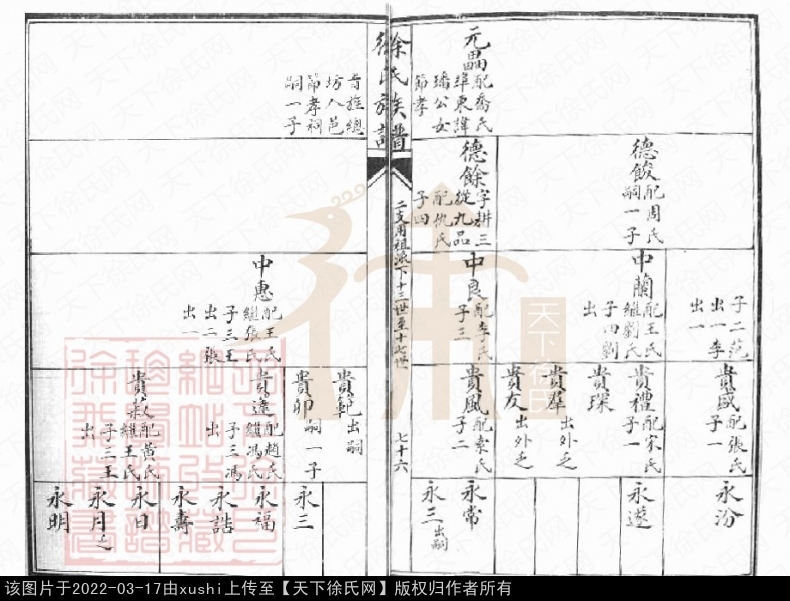 徐氏族譜
二支用祖派下十三世至十七世
七十六
元畾
配喬氏
阜東諱
璠公女
節孝
旨旌總
坊入邑
節孝祠
嗣一子
德餕
配周氏
嗣一子
德餘
字耕三
從九品
配仇氏
子四
子二范
出一李
出一
中蘭
配王氏
繼劉氏
子四劉
出
中良
配李氏
子三
中惠
配王氏
繼張氏
子三王
出二張
出一
貴盛
配張氏
子一
貴禮
配宋氏
子一
貴琛
貴羣
出外乏
貴友
出外乏
貴風
配索氏
子二
貴範
出嗣
貴卯
嗣一子
貴達
配趙氏
繼馮氏
子三馮
出
貴敖
配黃氏
繼王氏
子三王
出
永汾
永遂
永常
永三
出嗣
永三
永福
永誥
永壽
永日
永月
乏
永明
天下徐氏网
该图片于2022-03-17由xushi上传至【天下徐氏网】版权归作者所有